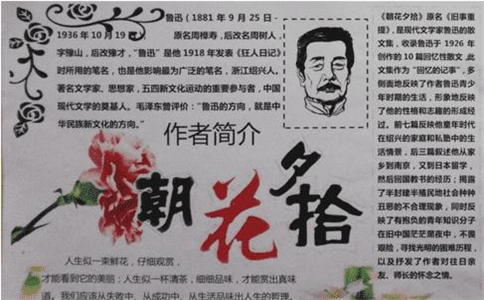 鲁迅（1881 年 9 月 25 日-
1936 年 10 月 19
原名周樟寿，后改名周树人，
字豫山，后改豫才，“鲁迅”是他 1918 年发表《狂人日记》
时所用的笔名，也是他影响最为广泛的笔名，浙江绍兴人。
著名文学家、思想家，五四新文化运动的重要参与者，中国
现代文学的奠基人。毛泽东曾评价：“鲁迅的方向，就是中
华民族新文化的方向。”
作者简介
朝花夕拾
人生似一束鲜花，仔细观赏，
才能看到它的美丽；人生似一杯清茶，细细品味，才能赏出真味
道。我们应该从失败中、从成功中、从生活品味出人生的哲理。
《朝花夕拾》原名《旧事重
提》，是现代文学家鲁迅的散
文集，收录鲁迅于 1926 年
创作的 10 篇回忆性散文，此
文集作为“回忆的记事”，多
侧面地反映了作者鲁迅青少
年时期的生活，形象地反映
了他的性格和志趣的形成经
过。前七篇反映他童年时代
在绍兴的家庭和私塾中的生
活情景，后三篇叙述他从家
乡到南京，又到日本留学，
然后回国教书的经历；揭露
了半封建半殖民地社会种种
丑恶的不合理现象，同时反
映了有抱负的青年知识分子
在旧中国茫茫黑夜中，不畏
艰险，寻找光明的困难历程，
以及抒发了作者对往日亲
友、师长的怀念之情。